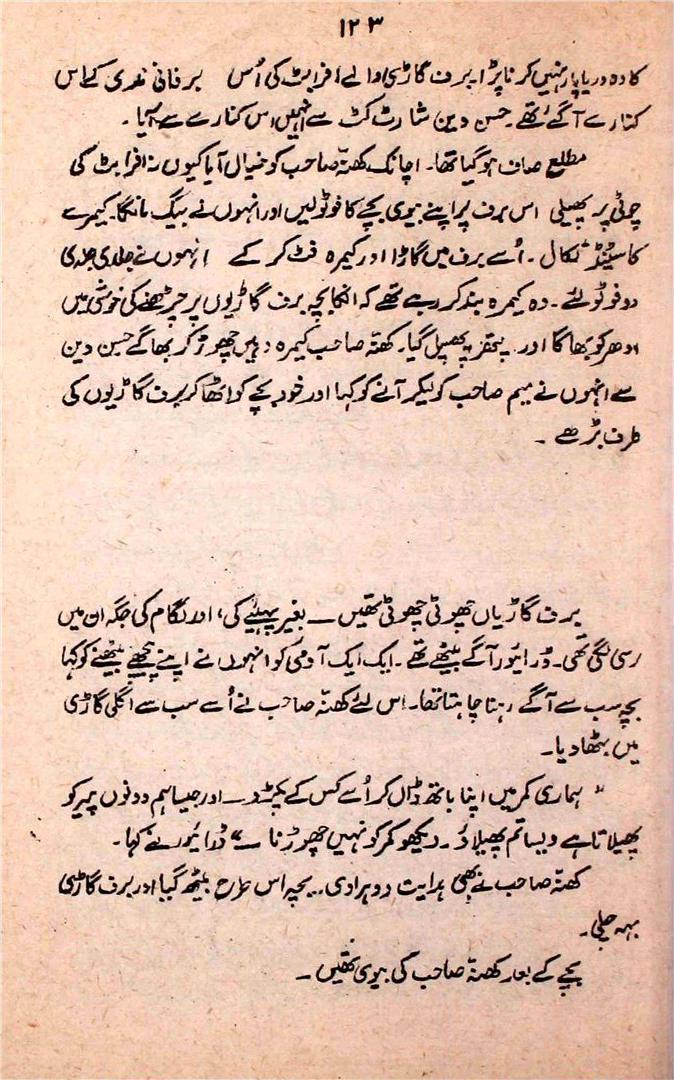 ۱۲۳
کا وہ دریا پار نہیں کرنا پڑا۔ برف گاڑی والے افراہٹ کی اُس برفانی ندی کے اس
کنارے آگئے تھے۔ حسن دین شارٹ کٹ سے انہیں اس کنارے سے لے آیا۔
مطلع صاف ہو گیا تھا۔ اچانک کھنّہ صاحب کو خیال آیا کیوں نہ افراہٹ کی
چوٹی پر پھیلی اس برف پر اپنے بیوی بچے کا فوٹو لیں اور انہوں نے بیگ مانگا۔ کیمرے
کا سٹینڈ نکالا۔ اُسے برف میں گاڑا اور کیمرہ فٹ کر کے انہوں نے جلدی جلدی
دو فوٹو لئے۔ وہ کیمرہ بند کر رہے تھے کہ انکا بچہ برف گاڑیوں پر چڑھنے کی خوشی میں
اُدھر کو بھاگا اور پتھر پہ پھسل گیا۔ کھنّہ صاحب کیمرہ وہیں چھوڑ کر بھاگے حسن دین
سے انہوں نے میم صاحب کو لیکر آنے کو کہا اور خود بچے کو اٹھا کر برف گاڑیوں کی
طرف بڑھے۔
برف گاڑیاں چھوٹی چھوٹی تھیں — بغیر پہیئے کی، اور لگام کی جگہ ان میں
رسی لگی تھی۔ ڈرائیور آگے بیٹھے تھے۔ ایک ایک آدمی کو انہوں نے اپنے پیچھے بیٹھنے کو کہا
بچہ سب سے آگے رہنا چاہتا تھا۔ اس لئے کھنّہ صاحب نے اُسے سب سے اگلی گاڑی
میں بٹھا دیا۔
"ہماری کمر میں اپنا ہاتھ ڈال کر اُسے کس کے پکڑو — اور جیسا ہم دونوں پیر کو
پھیلاتا ہے ویسا تم پھیلاؤ۔ دیکھو کمر کو نہیں چھوڑنا —" ڈرائیور نے کہا۔
کھنّہ صاحب نے بھی ہدایت دوہرا دی۔ بچہ اس طرح بیٹھ گیا اور برف گاڑی
بہہ چلی۔
بچے کے بعد کھنّہ صاحب کی بیوی تھیں۔